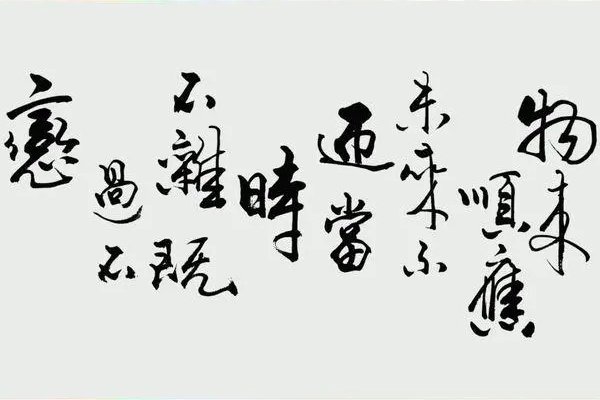 物来
順應
未來不
迎當
時
不雜既
過不
戀